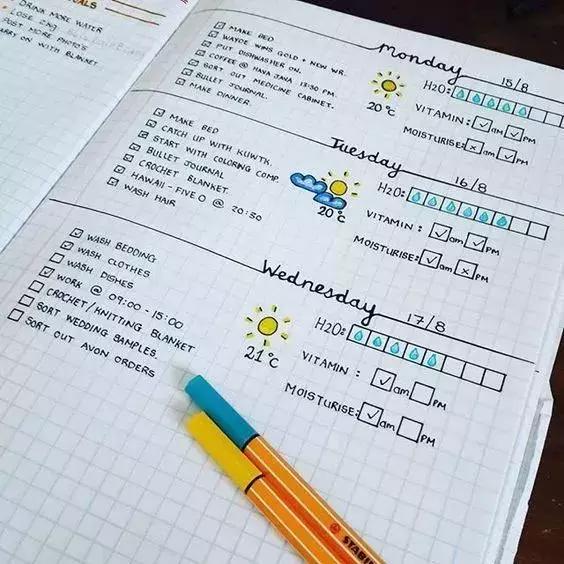 GOALS
DRINK MORE WATER
LOSE 2KG
POST MORE PHOTO'S
CARRY ON WITH BLANKET
Monday 15/8
MAKE BED
WAYDE WINS GOLD + NEW WR.
PUT DISHWASHER ON.
COFFEE @ HAVA JAVA 13:30 PM.
SORT OUT MEDICINE CABINET.
BULLET JOURNAL.
MAKE DINNER.
20°C
H2O:
VITAMIN: am PM
MOISTURISE: am PM
Tuesday 16/8
MAKE BED
CATCH UP WITH KUWTK.
START WITH COLORING COMP.
BULLET JOURNAL
CROCHET BLANKET.
HAWAII-FIVE O @ 20:30
WASH HAIR
20°C
H2O:
VITAMIN: am PM
MOISTURISE: am PM
Wednesday 17/8
WASH BEDDING
WASH CLOTHES
WASH DISHES
WORK @ 09:00 - 15:00
CROCHET/KNITTING BLANKET
SORT WEDDING SAMPLES.
SORT OUT AVON ORDERS
21°C
H2O:
VITAMIN: am PM
MOISTURISE: am PM
STABILO